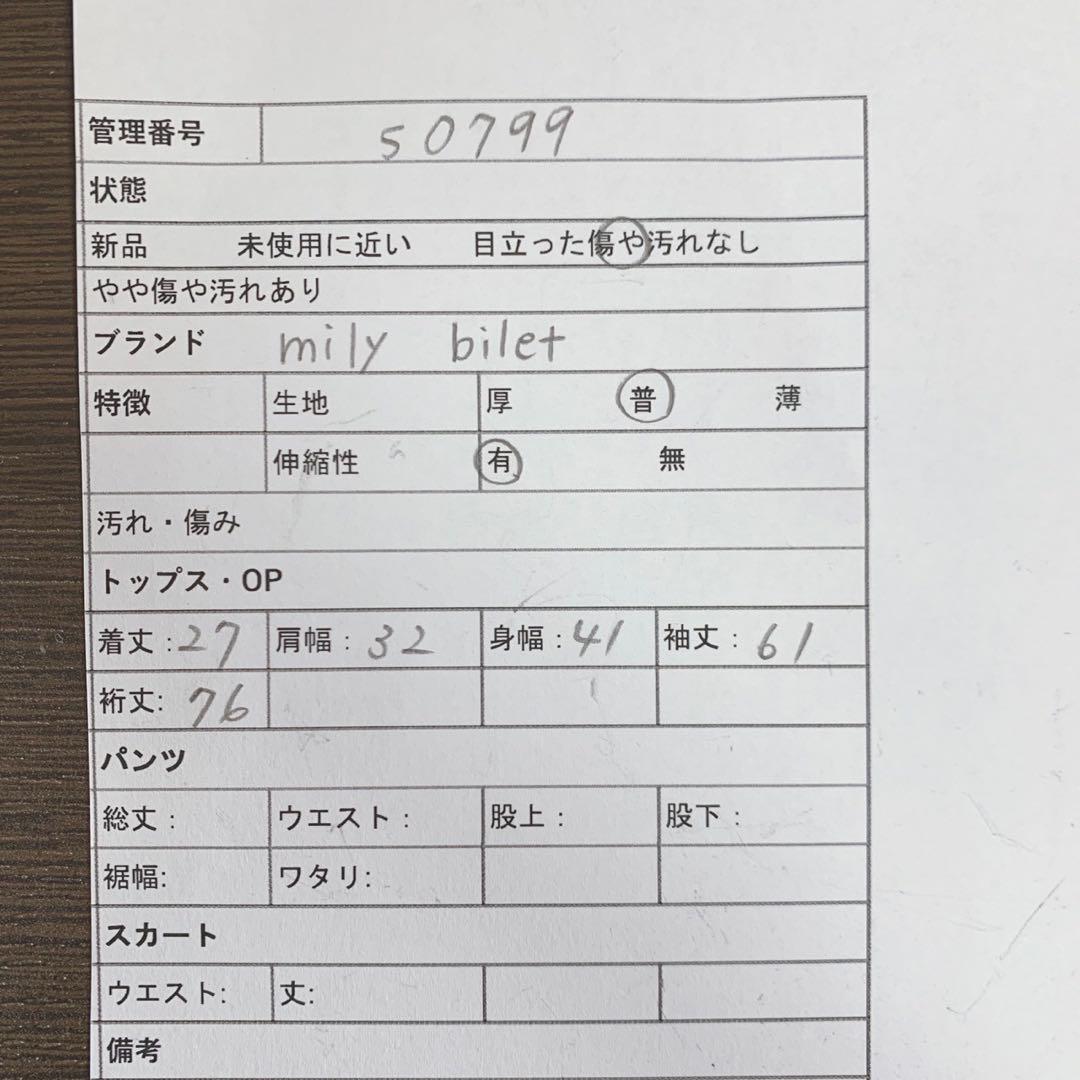 管理番号 50799
状態
新品 未使用に近い 目立った傷や汚れなし
やや傷や汚れあり
ブランド mily bilet
特徴 生地 厚 普 薄
伸縮性 有 無
汚れ・傷み
トップス・OP
着丈:27 肩幅:32 身幅:41 袖丈:61
裄丈:76
パンツ
総丈: ウエスト: 股上: 股下:
裾幅: ワタリ:
スカート
ウエスト: 丈:
備考